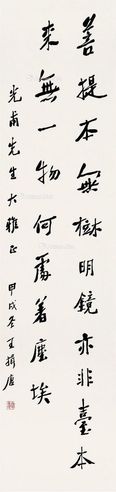 菩提本無樹明鏡亦非臺本
來無一物何處著塵埃
光甫先生大雅正 甲戌冬王揖唐